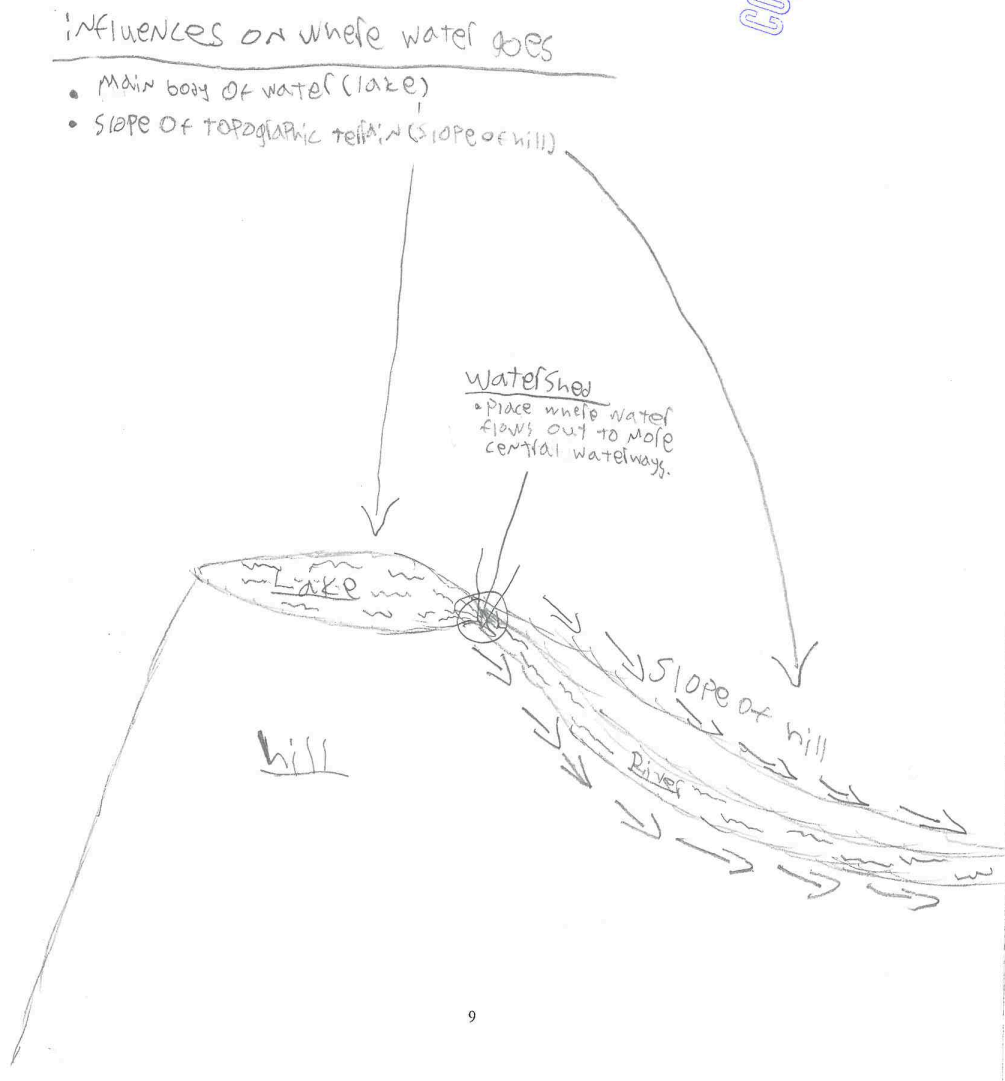 iNfluences on where water goes
• Main body of water (lake)
• Slope of topographic terrain (slope of hill)
Watershed
• Place where water
flows out to more
central waterways.
Lake
Slope of hill
hill
River
9